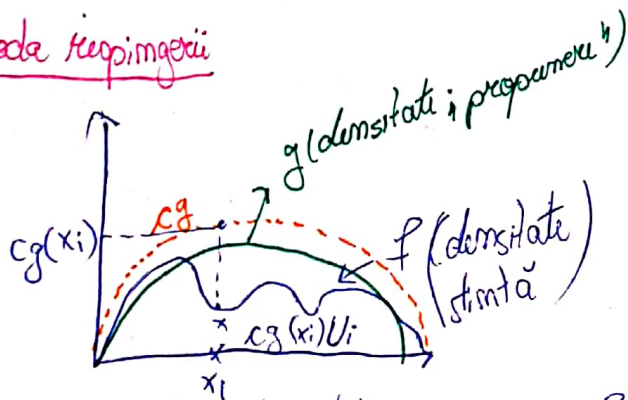 oda respingerii
g(densitate „propunere")
cg
cg(xi)
f (densitate
țintă)
x
cg(xi)Ui
x
xi